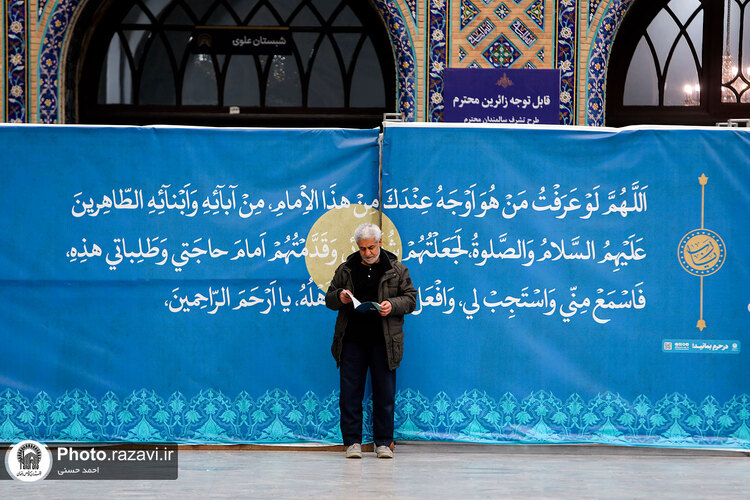 شبستان علوی
قابل توجه زائرین محترم
طرح تشرف سالمندان محترم
اَللّهُمَّ لَوْ عَرَفْتُ مَنْ هُوَ اَوْجَهُ عِنْدَكَ مِنْ هذَا الْاِمامِ، مِنْ آبائِهِ وَاَبْنائِهِ الطّاهِرينَ
عَلَيْهِمُ السَّلامُ وَالصَّلوةُ، لَجَعَلْتُهُمْ وَقَدَّمْتُهُمْ اَمامَ حاجَتي وَطَلِباتي هذِهِ،
فَاسْمَعْ مِنّي وَاسْتَجِبْ لي، وَافْعَلْ يا اَرْحَمَ الرّاحِمينَ،
در حرم بمانید!
Photo.razavi.ir
احمد حسنی